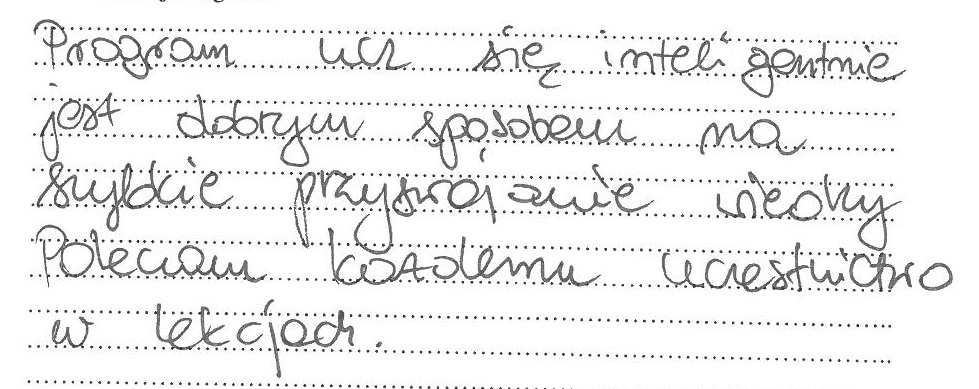 Program ucz się inteligentnie
jest dobrym sposobem na
szybkie przyswajanie wiedzy
Polecam każdemu uczestnictwo
w lekcjach.